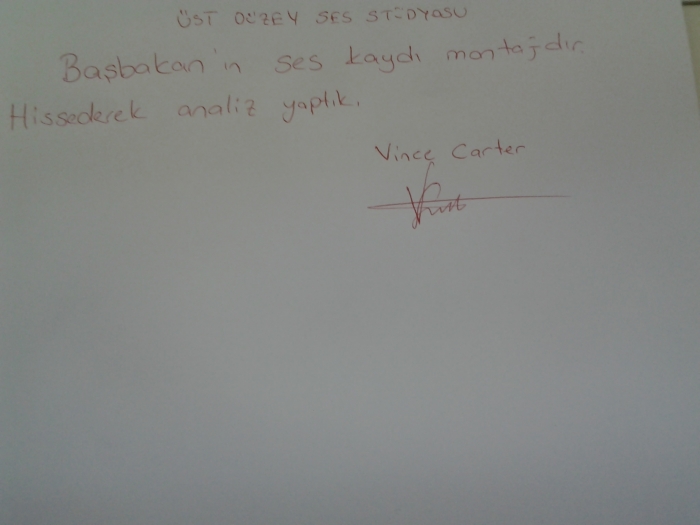 ÜST DÜZEY SES STÜDYOSU
Başbakan'ın ses kaydı montajdır.
Hissederek analiz yaptık.
Vince Carter